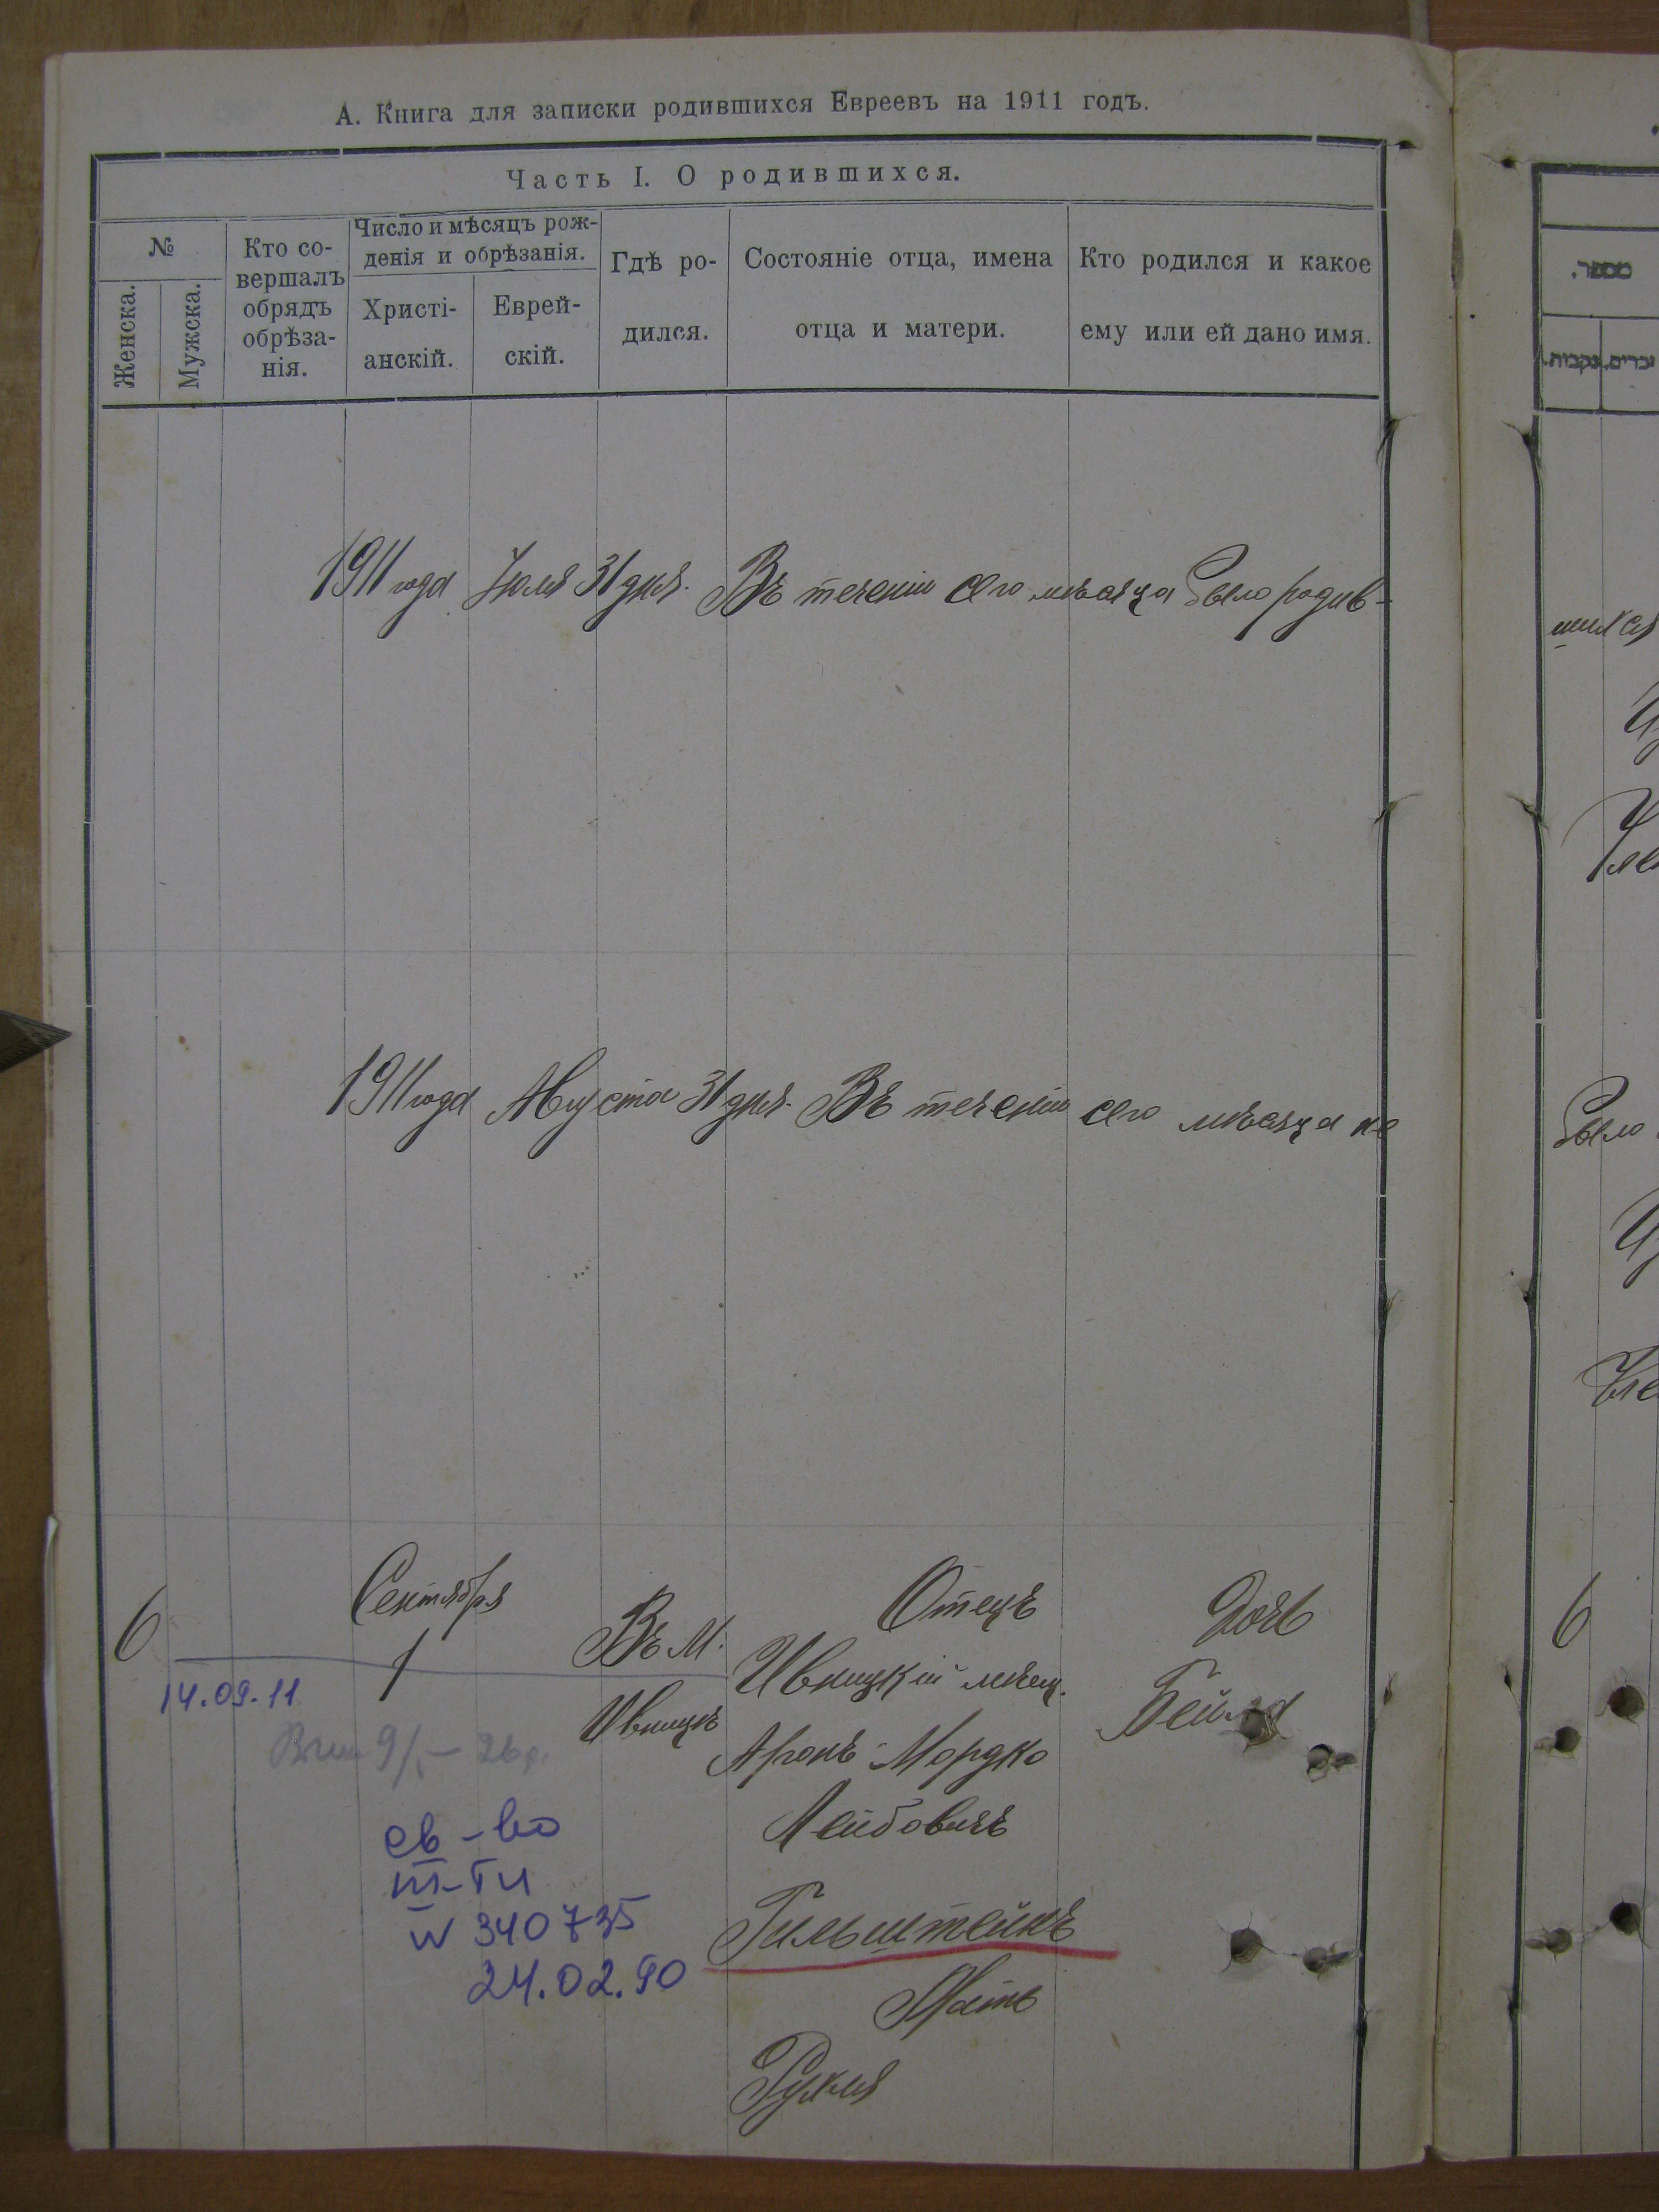 А. Книга для записки родившихся Евреевъ на 1911 годъ.
Часть I. О родившихся.
№
Женска.
Мужска.
Кто со-
вершалъ
обрядъ
обрѣза-
нія.
Число и мѣсяцъ рож-
денія и обрѣзанія.
Христі-
анскій.
Еврей-
скій.
Гдѣ ро-
дился.
Состояніе отца, имена
отца и матери.
Кто родился и какое
ему или ей дано имя.
מספר.
נקבות.
זכרים.
1911 года Іюля 31 дня. Въ теченіи сего мѣсяца было родив-
шихся
1911 года Августа 31 дня. Въ теченіи сего мѣсяца не
было
6
Сентября
1
Въ М.
Ивницѣ
Отецъ
Ивницкій мѣщ.
Аронъ Мордко
Лейбовичъ
Гильштейнъ
Мать
Рухля
Дочь
Бейла
6
14.09.11
св-во
III-ТИ
N 340735
24.02.90